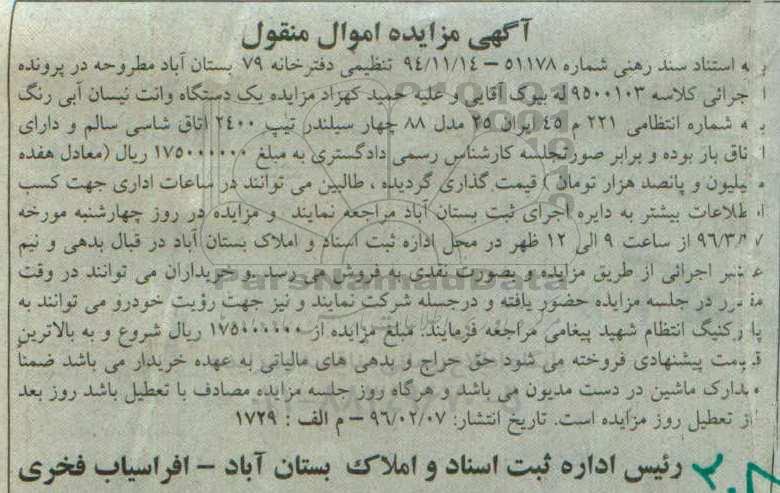 آگهی مزایده اموال منقول
به استناد سند رهنی شماره ۵۱۱۷۸ – ۹۴/۱۱/۱۴ تنظیمی دفترخانه ۷۹ بستان آباد مطروحه در پرونده
اجرائی کلاسه ۹۵۰۰۱۰۳ له بیوک آقایی و علیه حمید کهزاد مزایده یک دستگاه وانت نیسان آبی رنگ
به شماره انتظامی ۲۲۱ م ۴۵ ایران ۲۵ مدل ۸۸ چهار سیلندر تیپ ۲۴۰۰ اتاق شاسی سالم و دارای
اتاق باز بوده و برابر صورتجلسه کارشناس رسمی دادگستری به مبلغ ۱۷۵۰۰۰۰۰۰ ریال (معادل هفده
میلیون و پانصد هزار تومان) قیمت گذاری گردیده ، طالبین می توانند در ساعات اداری جهت کسب
اطلاعات بیشتر به دایره اجرای ثبت بستان آباد مراجعه نمایند و مزایده در روز چهارشنبه مورخه
از ساعت ۹ الی ۱۲ ظهر در محل اداره ثبت اسناد و املاک بستان آباد در قبال بدهی و نیم
عشر اجرائی از طریق مزایده و بصورت نقدی به فروش می رسد و خریداران می توانند در وقت
مقرر در جلسه مزایده حضور یافته و درجلسه شرکت نمایند و نیز جهت رؤیت خودرو می توانند به
پارکنیگ انتظام شهید پیغامی مراجعه فرمایند. مبلغ مزایده از ۱۷۵۰۰۰۰۰۰ ریال شروع و به بالاترین
قیمت پیشنهادی فروخته می شود حق حراج و بدهی های مالیاتی به عهده خریدار می باشد ضمناً
مدارک ماشین در دست مدیون می باشد و هرگاه روز جلسه مزایده مصادف با تعطیل باشد روز بعد
از تعطیل روز مزایده است. تاریخ انتشار: ۹۶/۰۲/۰۷ – م الف : ۱۷۲۹
رئیس اداره ثبت اسناد و املاک بستان آباد – افراسیاب فخری
ParsNamadData